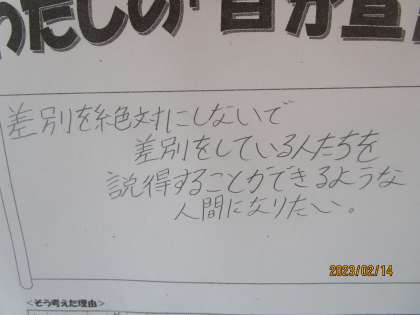 わたしの「自分宣
差別を絶対にしないで
差別をしている人たちを
説得することができるような
人間になりたい。
2023/02/14
<そう考えた理由>